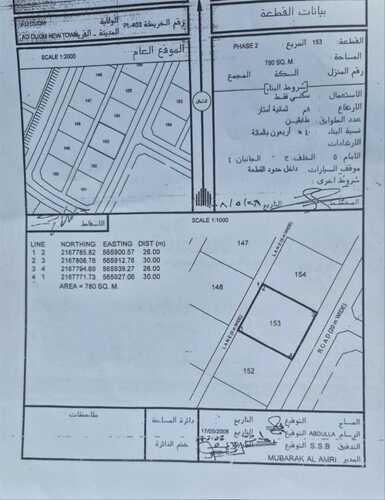 بيانات القطعة
القطعة 153 المربع PHASE 2
المساحة 780 SQ. M.
رقم المنزل السكة المجمع
شروط البناء
الاستعمال: سكني فقط
الارتفاع: ثمانية أمتار
عدد الطوابق: طابقين
نسبة البناء: ٤٠٪ أربعون بالمائة
الارتدادات
الامام ٥ الخلف ٣ الجانبان ٤
موقف السيارات داخل حدود القطعة
شروط اخرى
المخطط التاريخ
رقم الخريطة
الولاية
AD DUQM NEW TOWN
الموقع العام
SCALE 1:2000
SCALE 1:1000
LINE NORTHING EASTING DIST (m)
1 2 2167785.82 565900.57 26.00
2 3 2167808.78 565912.78 30.00
3 4 2167794.69 565939.27 26.00
4 1 2167771.73 565927.06 30.00
AREA = 780 SQ. M.
147
154
148
153
152
LANE (6 m WIDE)
LANE (6 m WIDE)
ROAD (20 m WIDE)
ملاحظات
دائرة المساحة
ختم الدائرة
التاريخ التوقيع المساح
17/05/2008 التاريخ التوقيع ABDULLA الرسام
التاريخ التوقيع S.S.B التدقيق
MUBARAK AL AMRI المدير